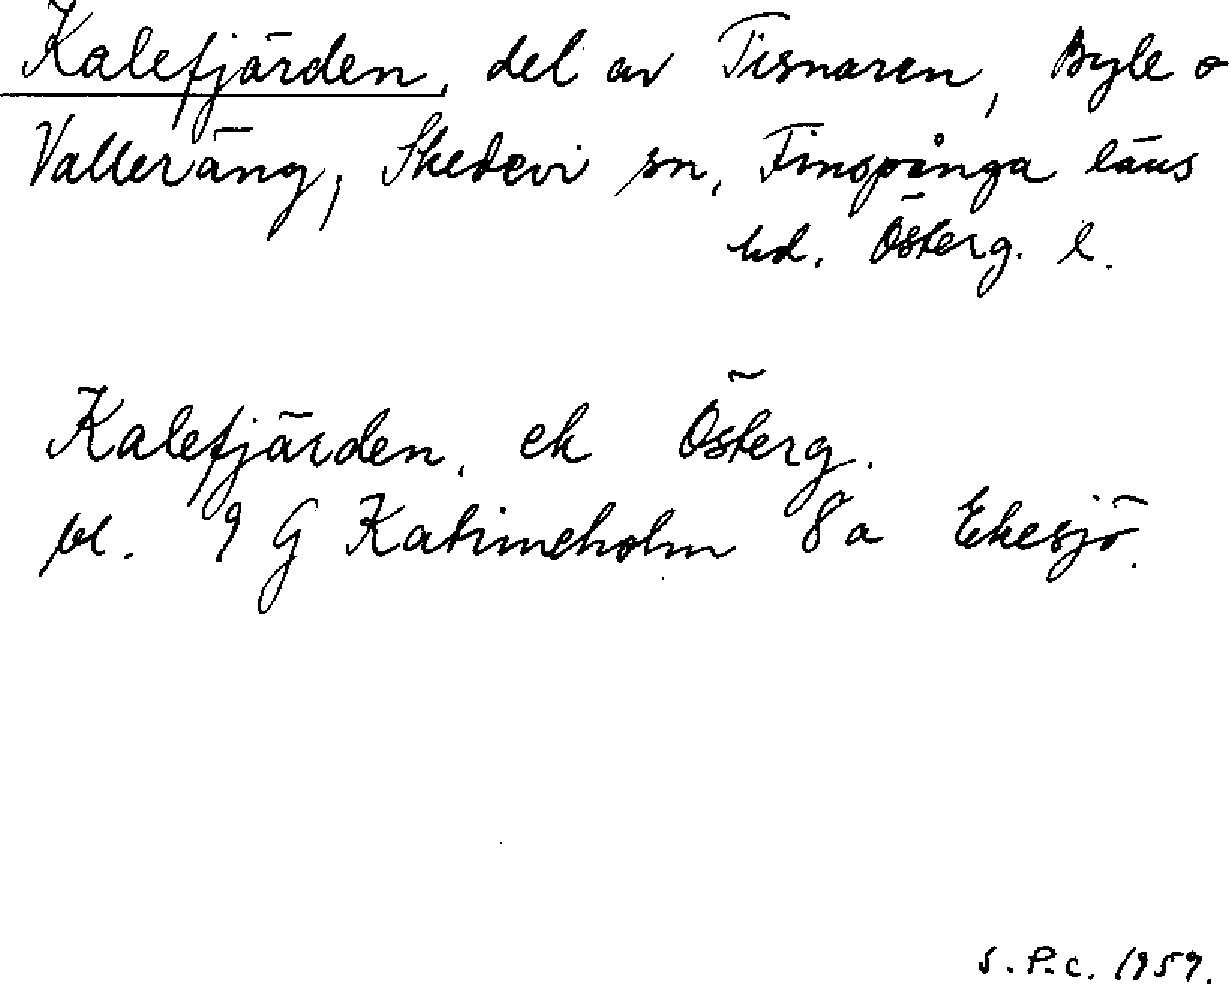 Kalefjärden, del av Tisnaren, Byle o
Valleräng, Skedevi sn, Finspånga läns
hd. Österg. l.
Kalefjärden, ek Österg.
bl. 9 G Katrineholm 8 a Ekesjö.
S.P.C. 1959.